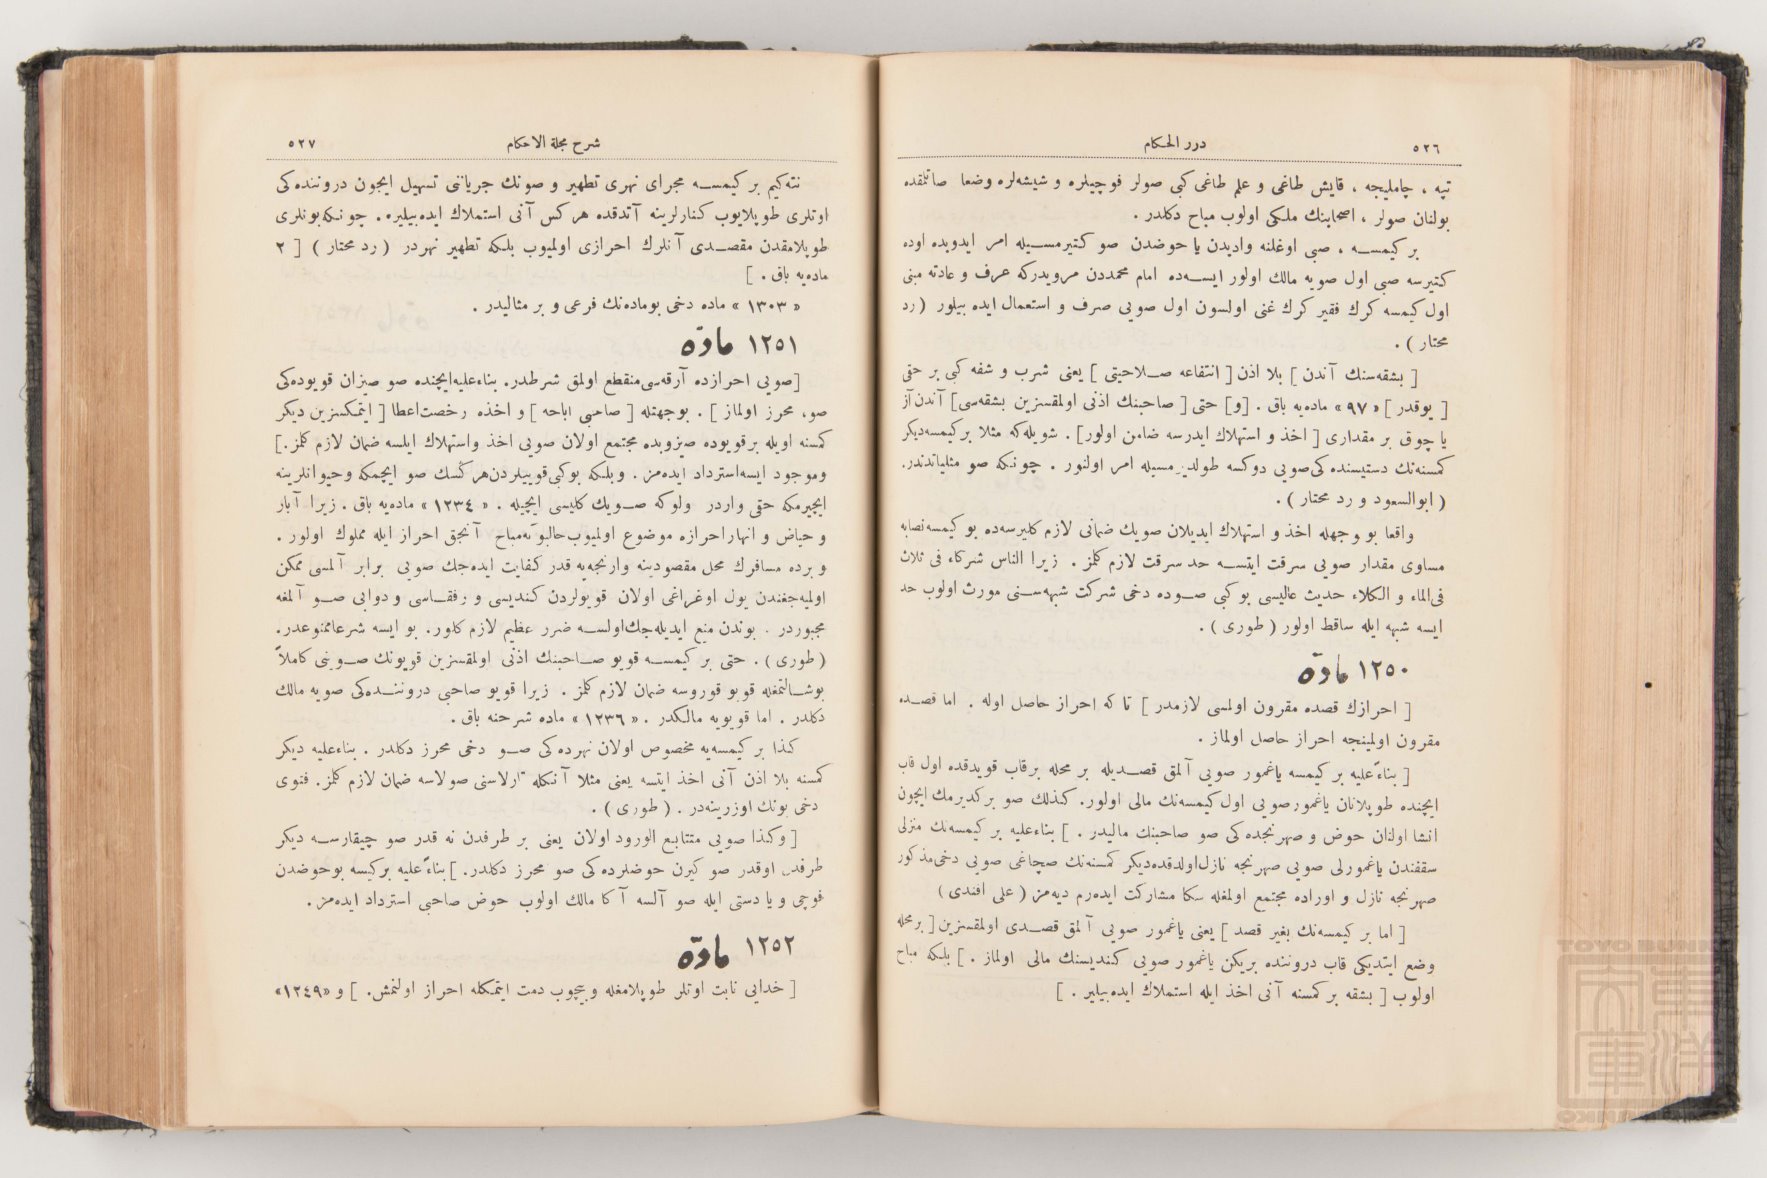 ٥٢٦
درر الحكام
تپه ، چامليجه ، قايش طاغى و علم طاغى كبى صولر فوچيلره و شيشه‌لره وضعا صاتلقده
بولنان صولر ، اصحابنك ملكى اولوب مباح دكلدر .
بر كيمسه ، صبى اوغلنه واديدن يا حوضدن صو كتيرمسيله امر ايدوبده اوده
كتيرسه صبى اول صويه مالك اولور ايسه‌ده امام محمددن مرويدركه عرف و عادته مبنى
اول كيمسه كرك فقير كرك غنى اولسون اول صويى صرف و استعمال ايده بيلور ( رد
محتار ) .
[ بشقه‌سنك آندن ] بلا اذن [ انتفاعه صلاحيتى ] يعنى شرب و شفه كبى بر حقى
[ يوقدر ] « ٩٧ » ماده‌يه باق . [و] حتى [ صاحبنك اذنى اولمقسزين بشقه‌سى] آندن آز
يا چوق بر مقدارى [ اخذ و استهلاك ايدرسه ضامن اولور] . شويله‌كه مثلا بر كيمسه‌ديكر
كمسنه‌نك دستيسنده كى صويى دوكسه طولديرمسيله امر اولنور . چونكه صو مثلياتدندر.
( ابوالسعود و رد محتار ) .
واقعا بو وجهله اخذ و استهلاك ايديلان صويك ضمانى لازم كليرسه‌ده بو كيمسه نصابه
مساوى مقدار صويى سرقت ايتسه حد سرقت لازم كلمز . زيرا الناس شركاء فى ثلاث
فى‌الماء و الكلاء حديث عاليسى بو كبى صوده دخى شركت شبهه‌سنى مورث اولوب حد
ايسه شبهه ايله ساقط اولور ( طورى ) .
١٢٥٠ مادّه
[ احرازك قصده مقرون اولمسى لازمدر ] تا كه احراز حاصل اوله . اما قصده
مقرون اولمينجه احراز حاصل اولماز .
[ بناءً عليه بر كيمسه ياغمور صويى آلمق قصديله بر محله برقاب قويدقده اول قاب
ايچنده طوپلانان ياغمورصويى اول كيمسه‌نك مالى اولور. كذلك صو بركديرمك ايچون
انشا اولنان حوض و صهرنجده كى صو صاحبنك ماليدر . ] بناءعليه بر كيمسه‌نك منزلى
سقفندن ياغمورلى صويى صهرنجه نازل اولدقده ديكر كمسنه‌نك صچاغى صويى دخى مذكور
صهرنجه نازل و اوراده مجتمع اولمغله سكا مشاركت ايده‌رم ديه‌مز ( على افندى )
[ اما بر كيمسه‌نك بغير قصد ] يعنى ياغمور صويى آلمق قصدى اولمقسزين [ بر محله
وضع ايتديكى قاب دروننده بريكن ياغمور صويى كنديسنك مالى اولماز . ] بلكه مباح
اولوب [ بشقه بر كمسنه آنى اخذ ايله استملاك ايده‌بيلير . ]
شرح مجلة الاحكام
٥٢٧
نته‌كيم بر كيمسه مجراى نهرى تطهير و صونك جريانى تسهيل ايچون دروننده كى
اوتلرى طوپلايوب كنارلرينه آتدقده هر كس آنى استملاك ايده‌بيليره . چونكه بونلرى
طوپلامقدن مقصدى آنلرك احرازى اولميوب بلكه تطهير نهردر ( رد محتار ) [ ٢
ماده‌يه باق . ]
« ١٣٠٣ » ماده دخى بوماده‌نك فرعى و بر مثاليدر .
١٢٥١ مادّه
[صويى احرازده آرقه‌سى منقطع اولمق شرطدر. بناءعليه ايچنده صو صيزان قويوده كى
صو، محرز اولماز ] . بوجهتله [ صاحبى اباحه ] و اخذه رخصت اعطا [ ايتمكسزين ديكر
كمسنه اويله برقويوده صيزوبده مجتمع اولان صويى اخذ واستهلاك ايلسه ضمان لازم كلمز .]
وموجود ايسه استرداد ايده‌مز . وبلكه بوكبى قوييلردن هركسك صو ايچمكه وحيوانلرينه
ايچيرمكه حقى واردر ولوكه صويك كليسى ايچيله . « ١٢٣٤ » ماده‌يه باق . زيرا آبار
و حياض و انهار احرازه موضوع اولميوب حالبوكه مباح آنجق احراز ايله مملوك اولور .
و برده مسافرك محل مقصودينه وارنجه‌يه قدر كفايت ايده‌جك صويى برابر آلمسى ممكن
اولميه‌جغندن يول اوغراغى اولان قويولردن كنديسى و رفقاسى و دوابى صو آلمغه
مجبوردر . بوندن منع ايديله‌جك اولسه ضرر عظيم لازم كلور . بو ايسه شرعا ممنوعدر.
( طورى ) . حتى بر كيمسه قويو صاحبنك اذنى اولمقسزين قويونك صوينى كاملاً
بوشالتمغله قويو قوروسه ضمان لازم كلمز . زيرا قويو صاحبى دروننده كى صويه مالك
دكلدر . اما قويويه مالكدر . « ١٢٣٦ » ماده شرحنه باق .
كذا بر كيمسه‌يه مخصوص اولان نهرده كى صو دخى محرز دكلدر . بناءعليه ديكر
كمسنه بلا اذن آنى اخذ ايتسه يعنى مثلا آنكله تارلاسنى صولاسه ضمان لازم كلمز. فتوى
دخى بونك اوزرينه‌در . ( طورى ) .
[ وكذا صويى متتابع الورود اولان يعنى بر طرفدن نه قدر صو چيقارسه ديكر
طرفدن اوقدر صو كيرن حوضلرده كى صو محرز دكلدر. ] بناءً عليه بركيسه بوحوضدن
فوچى و يا دستى ايله صو آلسه آ كا مالك اولوب حوض صاحبى استرداد ايده‌مز .
١٢٥٢ مادّه
[ خدايى نابت اوتلر طوپلامغله و بيچوب دمت ايتمكله احراز اولنمش. ] و «١٢٤٩»